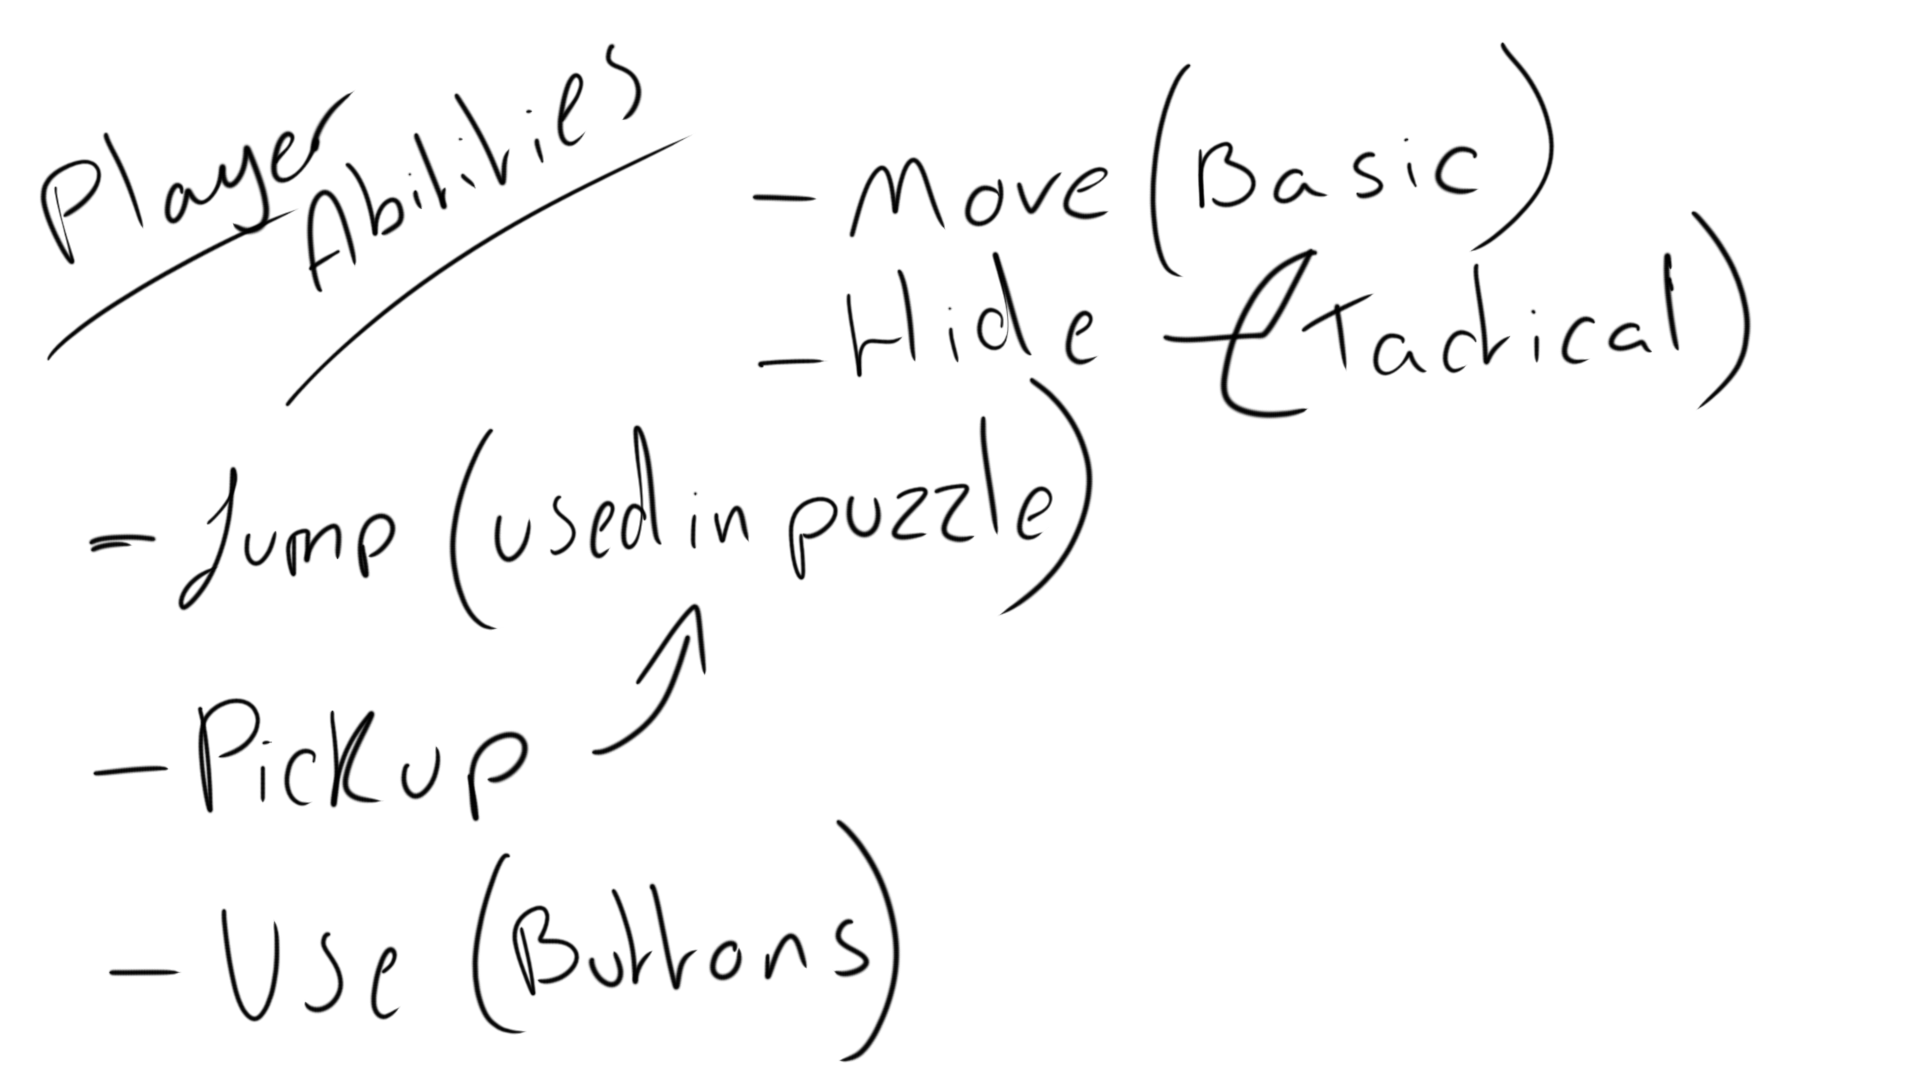 Player
Abilities
- Move (Basic)
- Hide - (Tactical)
- Jump (used in puzzle)
- Pickup
- Use (Buttons)